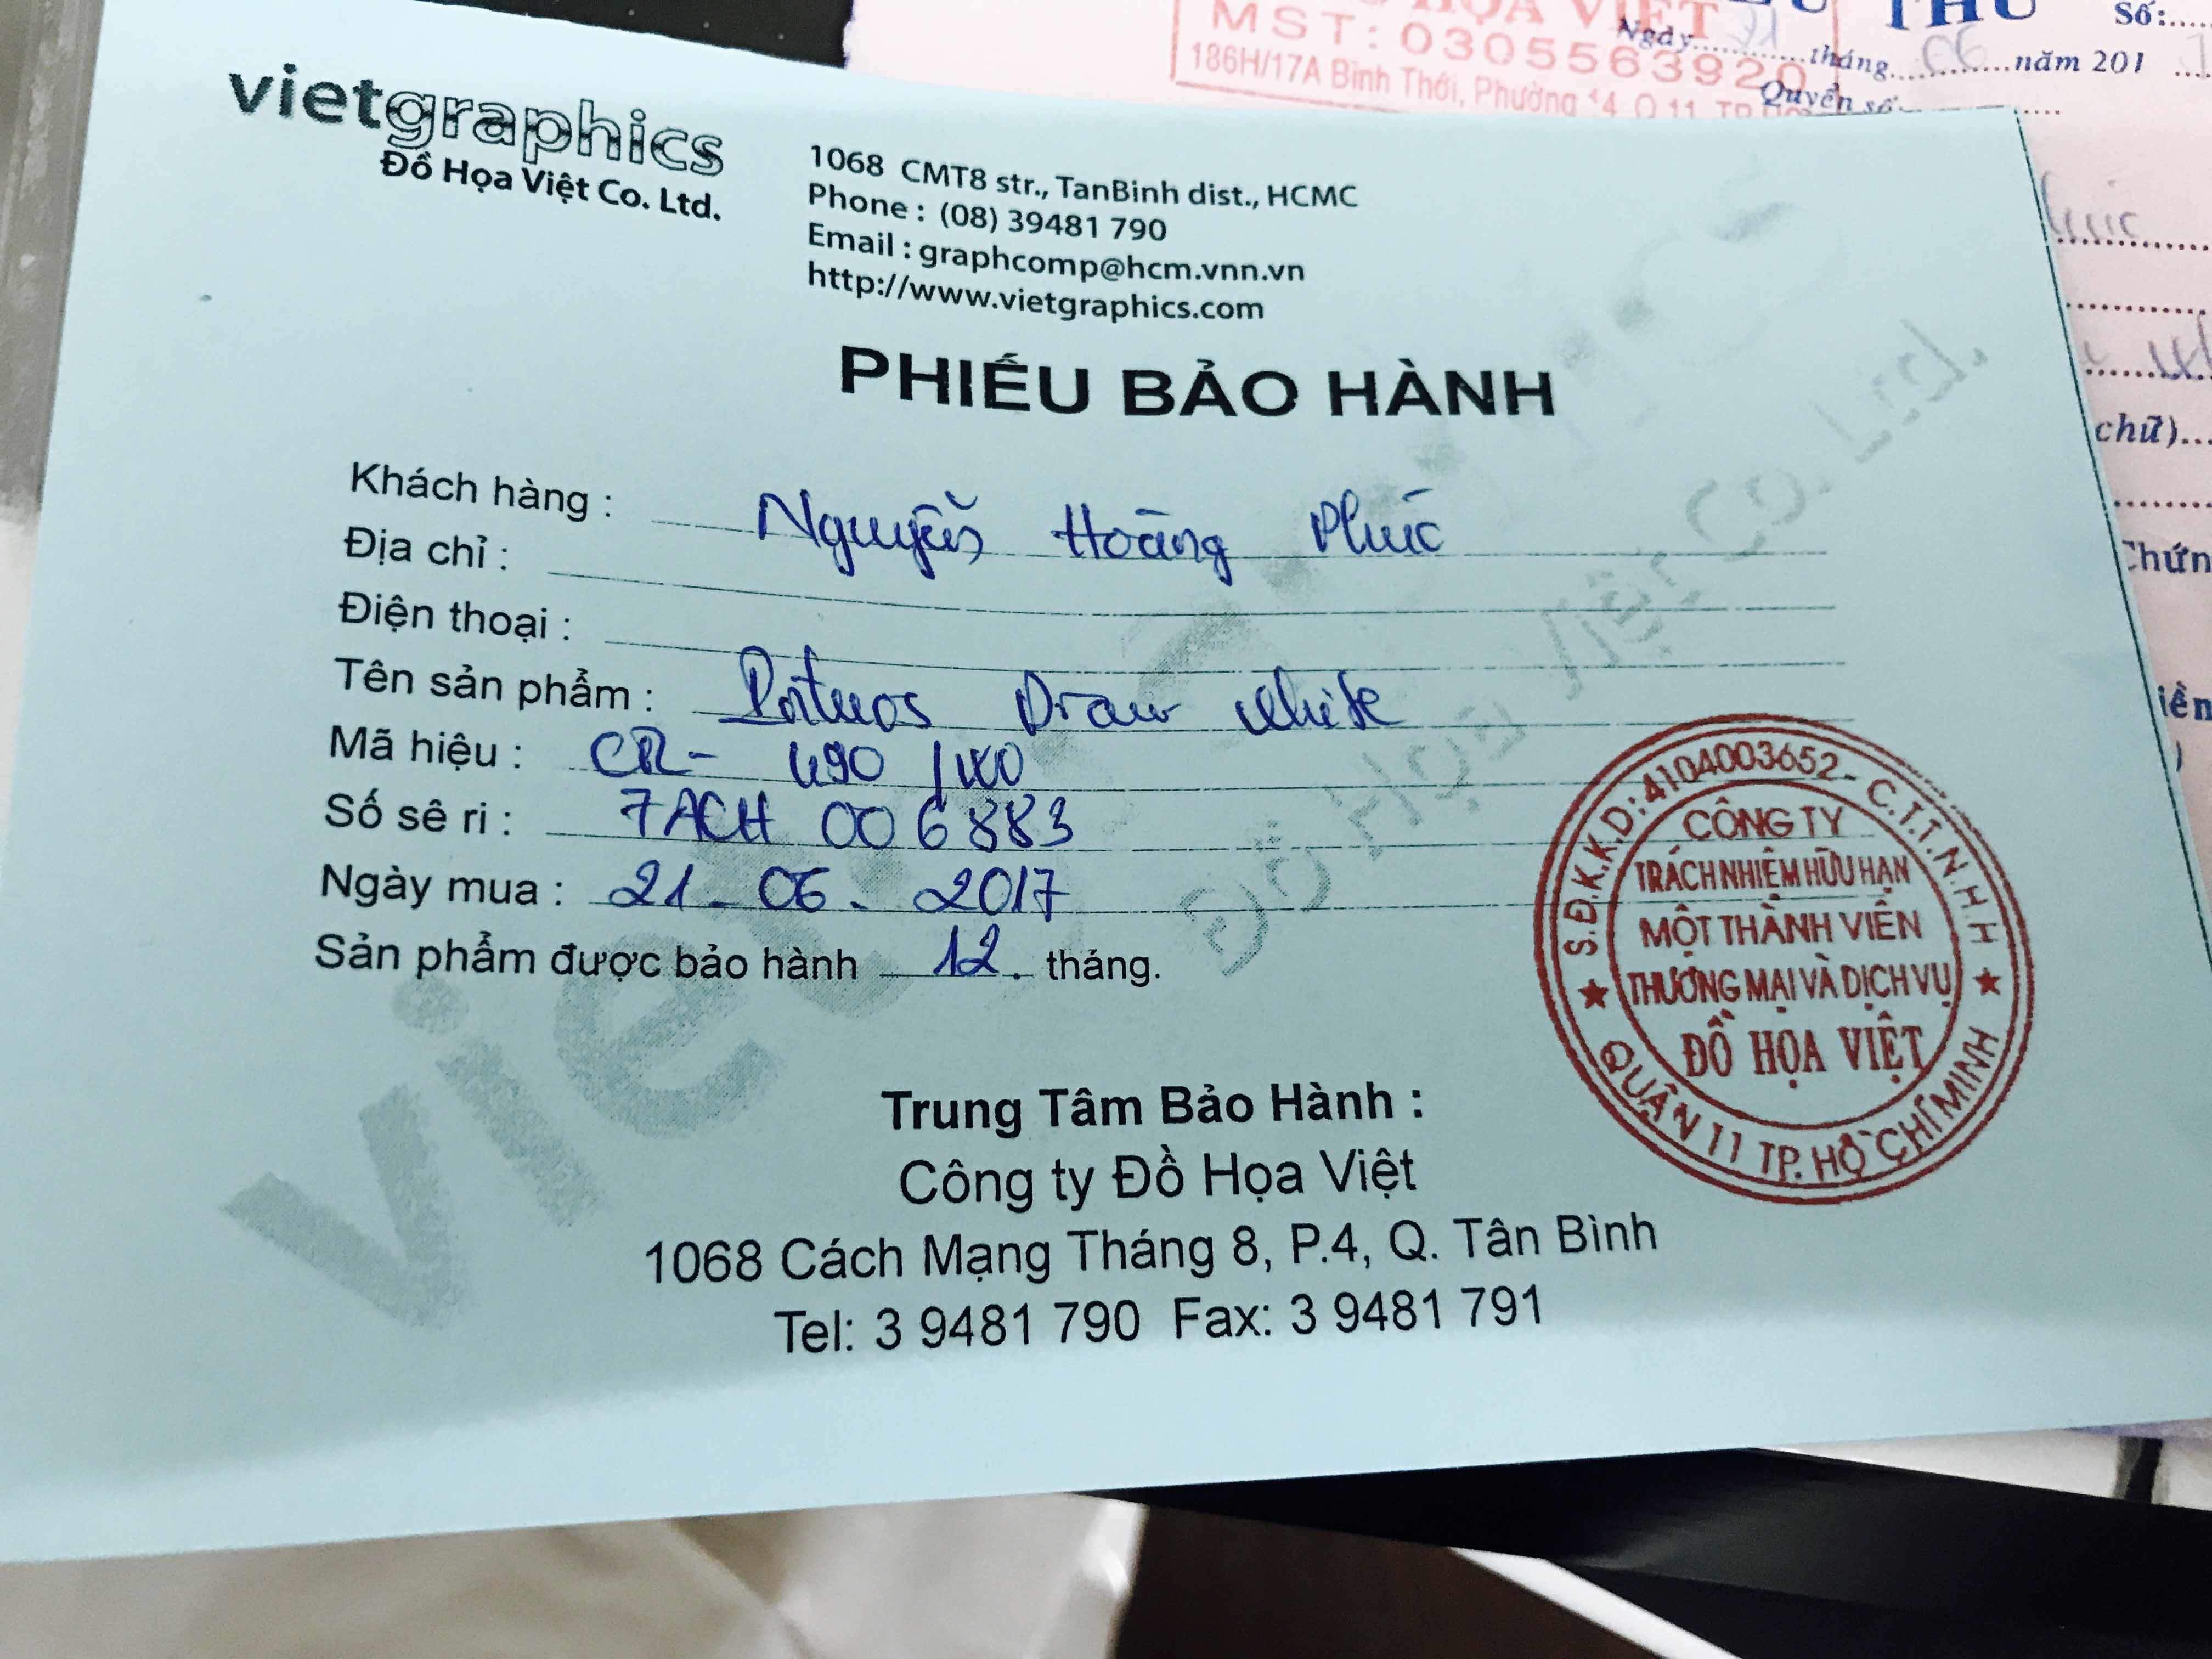 vietgraphics
Đồ Họa Việt Co. Ltd.
1068 CMT8 str., TanBinh dist., HCMC
Phone : (08) 39481 790
Email : graphcomp@hcm.vnn.vn
http://www.vietgraphics.com
PHIẾU BẢO HÀNH
Khách hàng : Nguyễn Hoàng Phúc
Địa chỉ :
Điện thoại :
Tên sản phẩm : Intuos Draw white
Mã hiệu : 490
Số sê ri : 7ACH 006883
Ngày mua : 21 - 06 - 2017
Sản phẩm được bảo hành 12. tháng.
Trung Tâm Bảo Hành :
Công ty Đồ Họa Việt
1068 Cách Mạng Tháng 8, P.4, Q. Tân Bình
Tel: 3 9481 790 Fax: 3 9481 791
S.Đ.K.K.D: 4104003652 - C.T.T.N.H.H
CÔNG TY
TRÁCH NHIỆM HỮU HẠN
MỘT THÀNH VIÊN
THƯƠNG MẠI VÀ DỊCH VỤ
ĐỒ HỌA VIỆT
QUẬN 11 TP. HỒ CHÍ MINH
Đồ Họa Việt Co. Ltd.
HỌA VIỆT
MST: 0305563920
186H/17A Bình Thới, Phường 14 Q 11
THU
Số:
Ngày 21 tháng 06 năm 201
Quyển số
chữ)